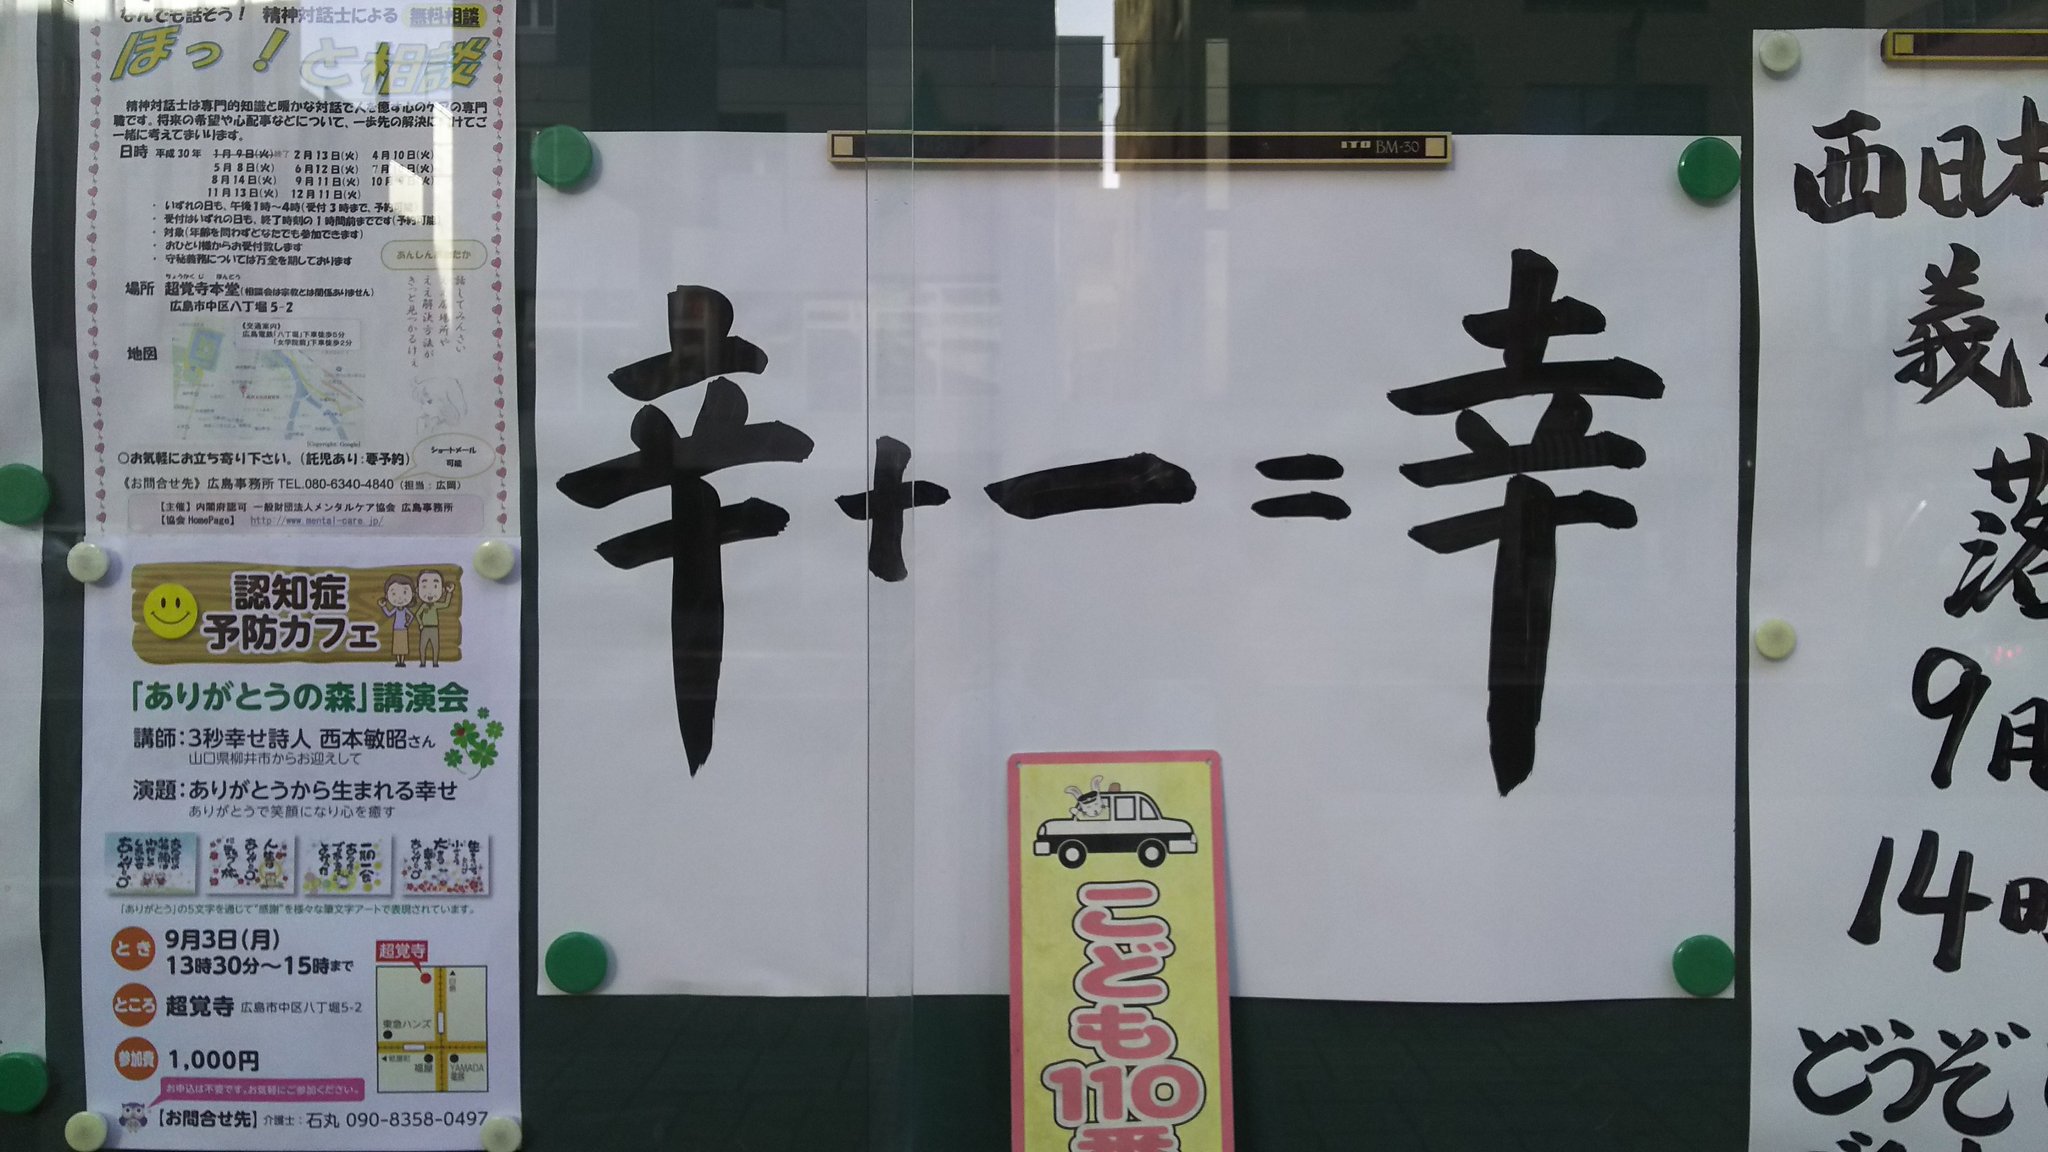 なんでも話そう！ 精神対話士による 無料相談
ほっ！と相談
精神対話士は専門的知識と暖かな対話で人を癒す心のケアの専門
職です。将来の希望や心配事などについて、一歩先の解決に向けてご
一緒に考えてまいります。
日時 平成30年 1月9日(火)終了 2月13日(火) 4月10日(火)
5月8日(火) 6月12日(火)
8月14日(火) 9月11日(火) 10月9日(火)
11月13日(火) 12月11日(火)
・いずれの日も、午後1時〜4時(受付3時まで、予約可能)
・受付はいずれの日も、終了時刻の1時間前までです(予約可能)
・対象(年齢を問わずどなたでも参加できます)
・おひとり様からお受付致します
・守秘義務については万全を期しております
話してみんさい
ええ解決方法が
きっと見つかるけぇ
ちょうかくじ ほんどう
場所 超覚寺本堂(相談会は宗教とは関係ありません)
広島市中区八丁堀5-2
《交通案内》
広島電鉄「八丁堀」下車徒歩5分
「女学院前」下車徒歩2分
地図
(Copyright: Google)
○お気軽にお立ち寄り下さい。(託児あり:要予約)
ショートメール
可能
《お問合せ先》広島事務所 TEL.080-6340-4840 (担当：広岡)
【主催】内閣府認可 一般財団法人メンタルケア協会 広島事務所
【協会HomePage】 http://www.mental-care.jp/
認知症
予防カフェ
「ありがとうの森」講演会
講師：3秒幸せ詩人 西本敏昭さん
山口県柳井市からお迎えして
演題：ありがとうから生まれる幸せ
ありがとうで笑顔になり心を癒す
「ありがとう」の5文字を通じて“感謝”を様々な筆文字アートで表現されています。
とき 9月3日(月)
13時30分〜15時まで
ところ 超覚寺 広島市中区八丁堀5-2
参加費 1,000円
お申込は不要です。お気軽にご参加ください。
超覚寺
東急ハンズ
福屋
YAMADA
電器
【お問合せ先】介護士：石丸 090-8358-0497
ITO BM-30
辛+一=幸
こども
110
番
西日本
義
落
9月
14時
どうぞ